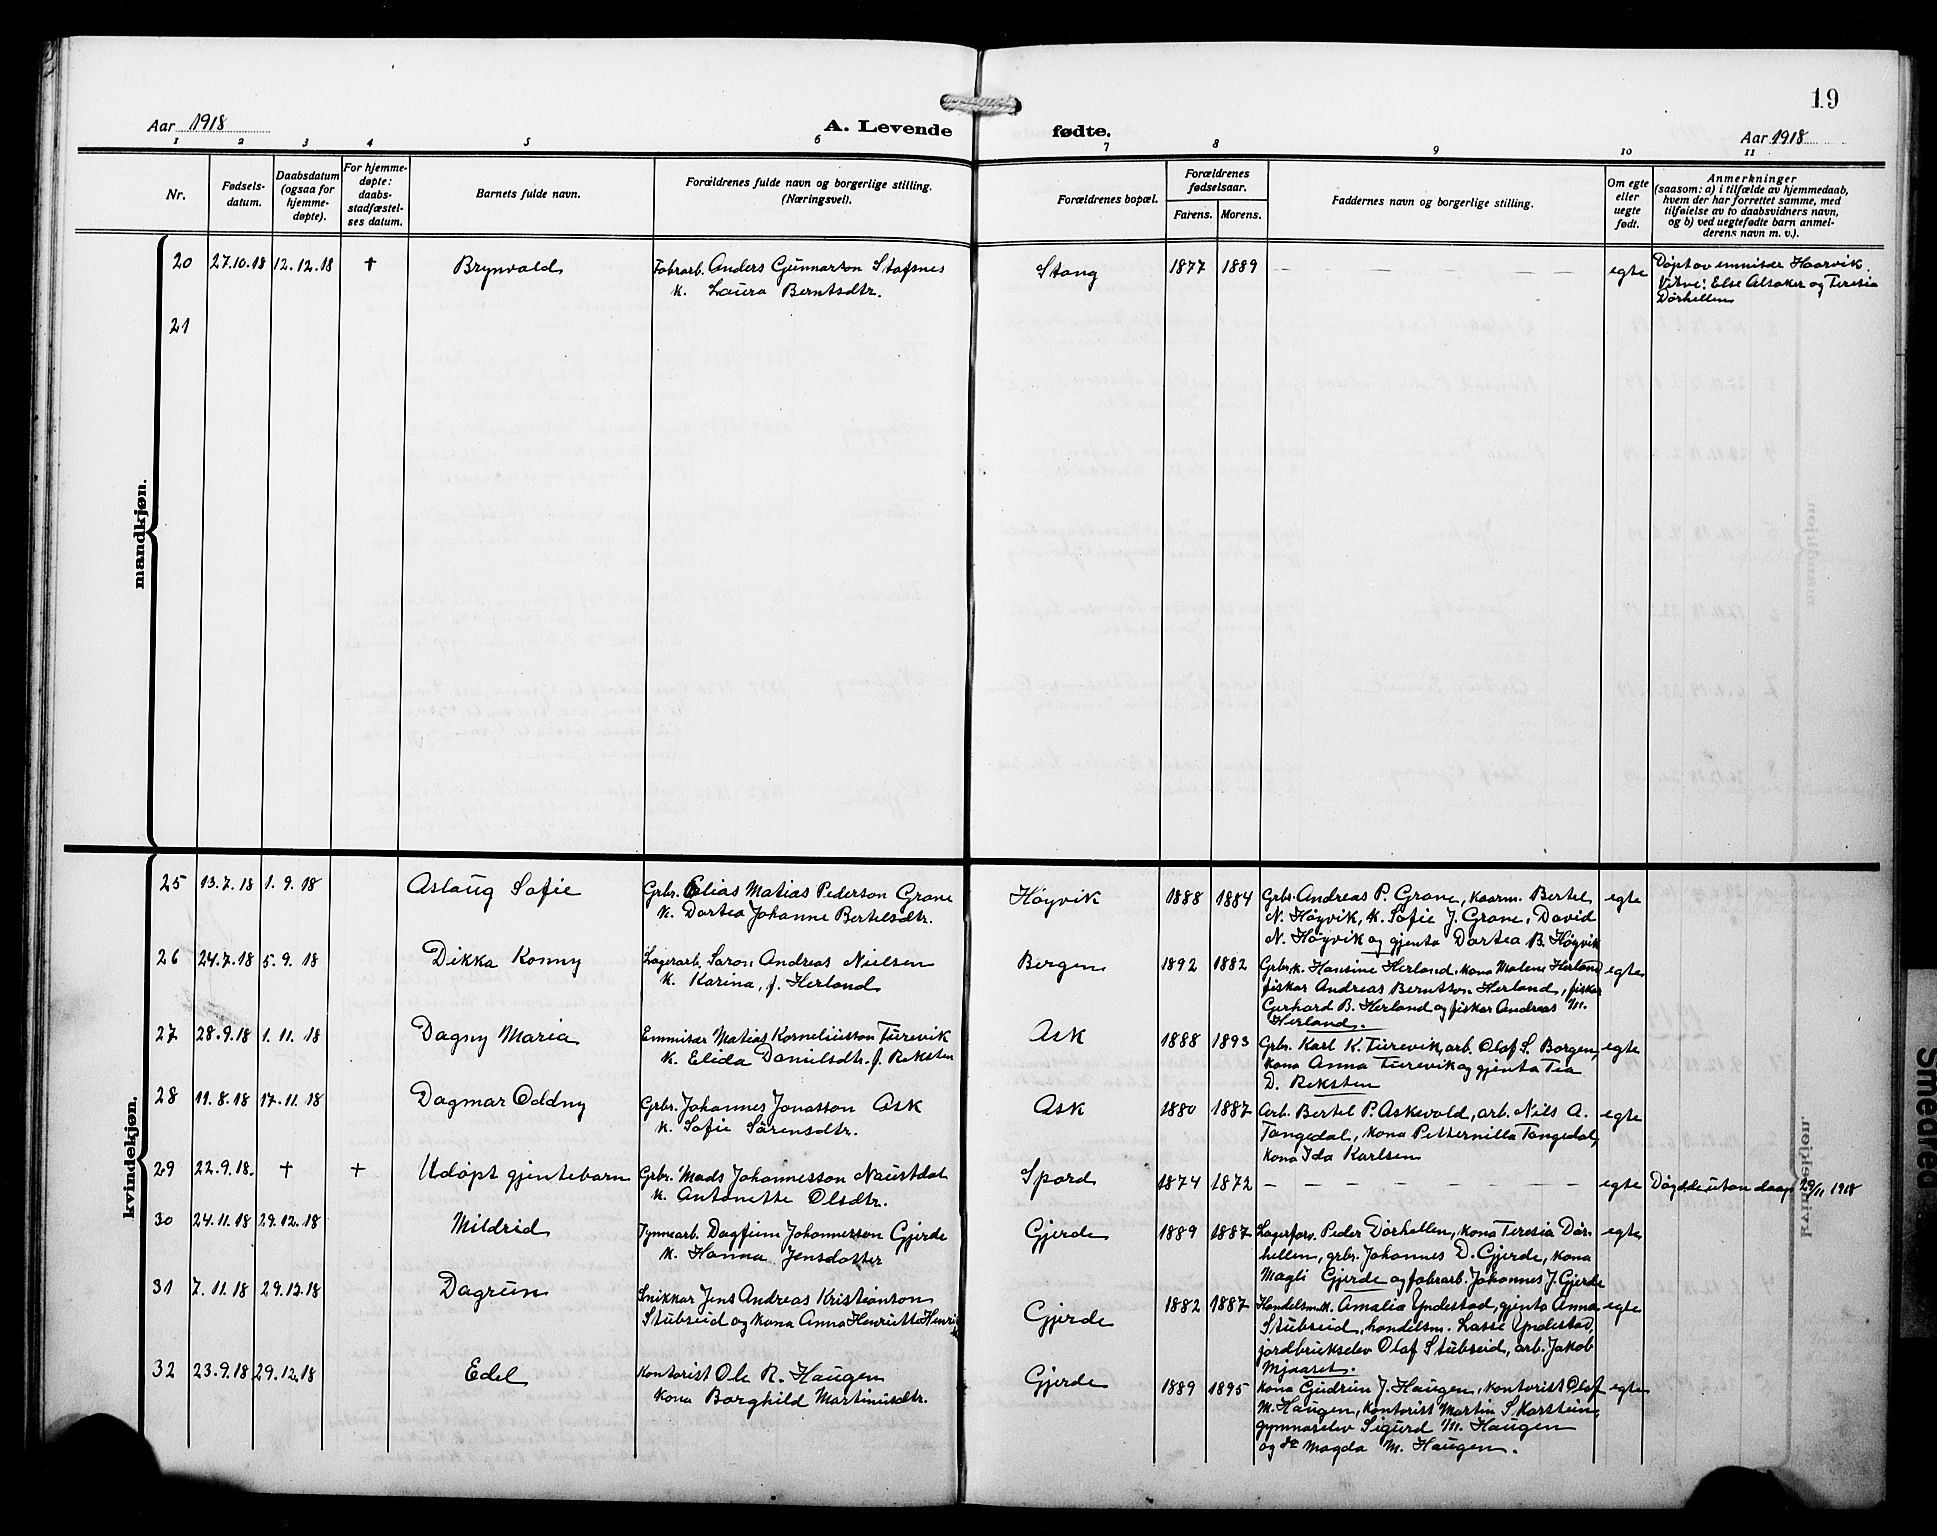 19
Aar 1918
A. Levende fødte.
Aar 1918
1 2 3 4 5 6 7 8 9 10 11
Nr.
Fødsels-
datum.
Daabsdatum
(ogsaa for
hjemme-
døpte).
For hjemme-
døpte:
daabs-
stadfæstel-
ses datum.
Barnets fulde navn.
Forældrenes fulde navn og borgerlige stilling.
(Næringsvei).
Forældrenes bopæl.
Forældrenes
fødselsaar.
Farens. Morens.
Faddernes navn og borgerlige stilling.
Om egte
eller
uegte
født.
Anmerkninger
(saasom: a) i tilfælde av hjemmedaab,
hvem der har forrettet samme, med
tilføielse av to daabsvidners navn,
og b) ved uegtefødte barn anmel-
derens navn m. v.).
mandkjøn.
20 27.10.18 12.12.18 † Brynvald
Fabrarb. Anders Gunnarson Stafsnes
k. Laura Berntsdtr.
Stang 1877 1889 — — — — — — — egte
Døpt av emmisær Haarvik.
Vitne: Else Alsaker og Teresia
Dörhellen
21
kvindekjøn.
25 13.7.18 1.9.18 Aslaug Sofie
Grbr. Elias Matias Pederson Grane
k. Dortea Johanne Bertelsdtr.
Høyvik 1888 1884
Grbr. Andreas P. Grane, kaarm. Bertel
N. Høyvik, k. Sofie J. Grane, David
N. Høyvik og gjenta Dortea B. Høgvik
egte
26 24.7.18 5.9.18 Dikka Konny
Lagerarb. Saron Andreas Nielsen
k. Karina, f. Herland
Bergen 1892 1882
Grbr.k. Hansine Herland, kona Malene Herland
fiskar Andreas Berntson Herland, fiskar
Gerhard B. Herland og fiskar Andreas M.
Herland.
egte
27 28.9.18 1.11.18 Dagny Maria
Emmisær Matias Korneliusson Turevik
k. Elida Danielsdtr. f. Reksten
Ask 1888 1893
Grbr. Karl K. Turevik, arb. Olaf S. Borgen,
kona Anna Turevik og gjenta Tea
D. Reksten
egte
28 11.8.18 17.11.18 Dagmar Oddny
Grbr. Johannes Jonasson Ask
k. Sofie Sörensdtr.
Ask 1880 1887
Arb. Bertel P. Askevold, arb. Nils A.
Tangedal, kona Petternilla Tangedal,
kona Ida Karlsen
egte
29 22.9.18. † † Udöpt gjentebarn
Grbr. Mads Johannesson Naustdal
k. Antonette Olsdtr.
Spord 1874 1872 — — — — — — — egte
Döydde utan daap 29/11 1918
30 24.11.18 29.12.18 Mildrid
Tynnearb. Dagfinn Johannesson Gjerde
k. Hanna Jensdotter
Gjerde 1889 1887
Lagerforv. Peder Dörhellen, kona Teresia Dör-
hellen, grbr. Johannes D. Gjerde, kona
Magli Gjerde og fabrarb. Johannes J. Gjerde
egte
31 7.11.18 29.12.18 Dagrun
Snikkar Jens Andreas Kristianson
Stubseid og kona Anna Henriette
Gjerde 1882 1887
Handelsm.k. Amalia Yndestad, gjenta Anna
Stubseid, handelsm. Lasse Yndestad,
jordbrukselev Olaf Stubseid, arb. Jakob
Mjaaset.
egte
32 23.9.18 29.12.18 Edel
Kontorist Ole R. Haugen
kona Borghild Martinusdtr.
Gjerde 1889 1895
kona Gudrun J. Haugen, kontorist Olaf
M. Haugen, kontorist Martin S. Karstein,
gymnaselev Sigurd M. Haugen
og do Magda M. Haugen.
egte
Smedred